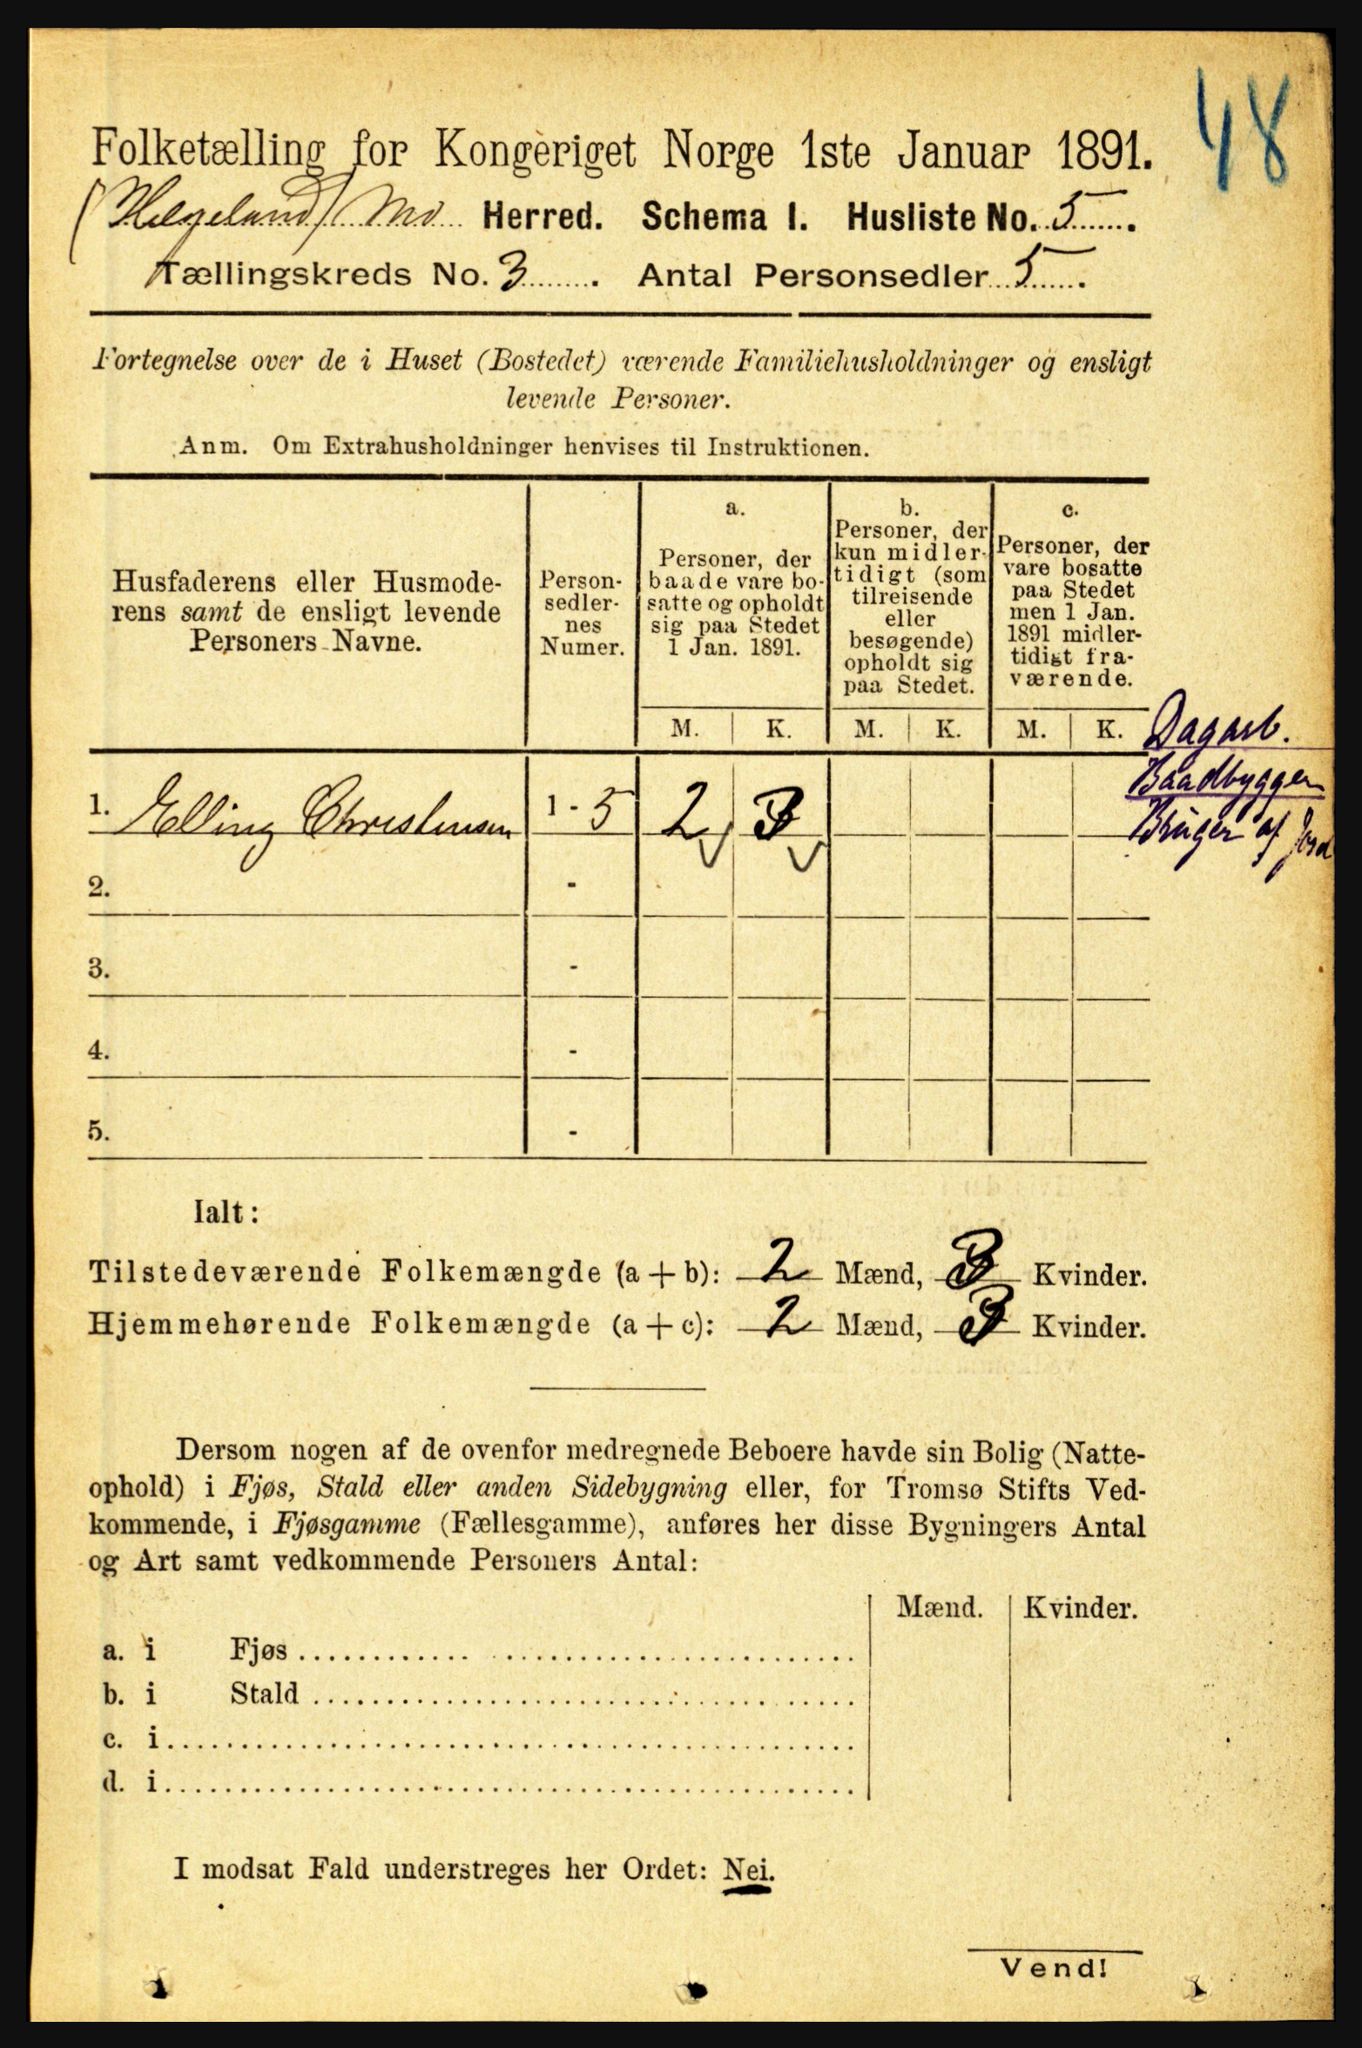 48
Folketælling for Kongeriget Norge 1ste Januar 1891.
(Helgeland) Mo Herred. Schema I. Husliste No. 5.
Tællingskreds No. 3. Antal Personsedler 5.
Fortegnelse over de i Huset (Bostedet) værende Familiehusholdninger og ensligt
levende Personer.
Anm. Om Extrahusholdninger henvises til Instruktionen.
Husfaderens eller Husmode-
rens samt de ensligt levende
Personers Navne.
Person-
sedler-
nes
Numer.
a.
Personer, der
baade vare bo-
satte og opholdt
sig paa Stedet
1 Jan. 1891.
b.
Personer, der
kun midler-
tidigt (som
tilreisende
eller
besøgende)
opholdt sig
paa Stedet.
c.
Personer, der
vare bosatte
paa Stedet
men 1 Jan.
1891 midler-
tidigt fra-
værende.
M. K. M. K. M. K.
Dagarb.
Baadbygger
Bruger af Jord
1. Elling Christensen 1 - 5 2 3
2. -
3. -
4. -
5. -
Ialt:
Tilstedeværende Folkemængde (a + b): 2 Mænd, 3 Kvinder.
Hjemmehørende Folkemængde (a + c): 2 Mænd, 3 Kvinder.
Dersom nogen af de ovenfor medregnede Beboere havde sin Bolig (Natte-
ophold) i Fjøs, Stald eller anden Sidebygning eller, for Tromsø Stifts Ved-
kommende, i Fjøsgamme (Fællesgamme), anføres her disse Bygningers Antal
og Art samt vedkommende Personers Antal:
Mænd. Kvinder.
a. i Fjøs
b. i Stald
c. i
d. i
I modsat Fald understreges her Ordet: Nei.
Vend!